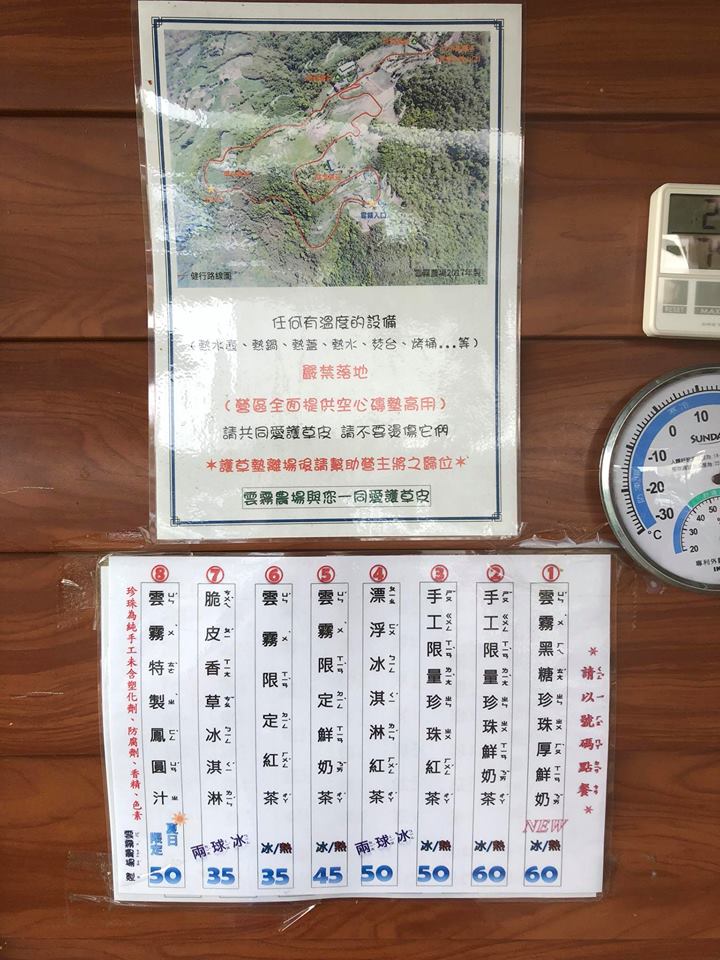 雲霧入口
健行路線圖
雲霧農場2017年製
任何有溫度的設備
（熱水壺、熱鍋、熱蓋、熱水、焚台、烤桶...等）
嚴禁落地
（營區全面提供空心磚墊高用）
請共同愛護草皮 請不要燙傷它們
*護草墊離場後請幫助營主將之歸位*
雲霧農場與您一同愛護草皮
RESET
0
10
-10
-20
-30
°C
SUNDA
50
40
30
20
專利外
*請以號碼點餐*
① 雲霧黑糖珍珠厚鮮奶 NEW 冰/熱 60
② 手工限量珍珠鮮奶茶 冰/熱 60
③ 手工限量珍珠紅茶 冰/熱 50
④ 漂浮冰淇淋紅茶 兩球冰 50
⑤ 雲霧限定鮮奶茶 冰/熱 45
⑥ 雲霧限定紅茶 冰/熱 35
⑦ 脆皮香草冰淇淋 兩球冰 35
⑧ 雲霧特製鳳圓汁 夏日限定 50
珍珠為純手工未含塑化劑、防腐劑、香精、色素